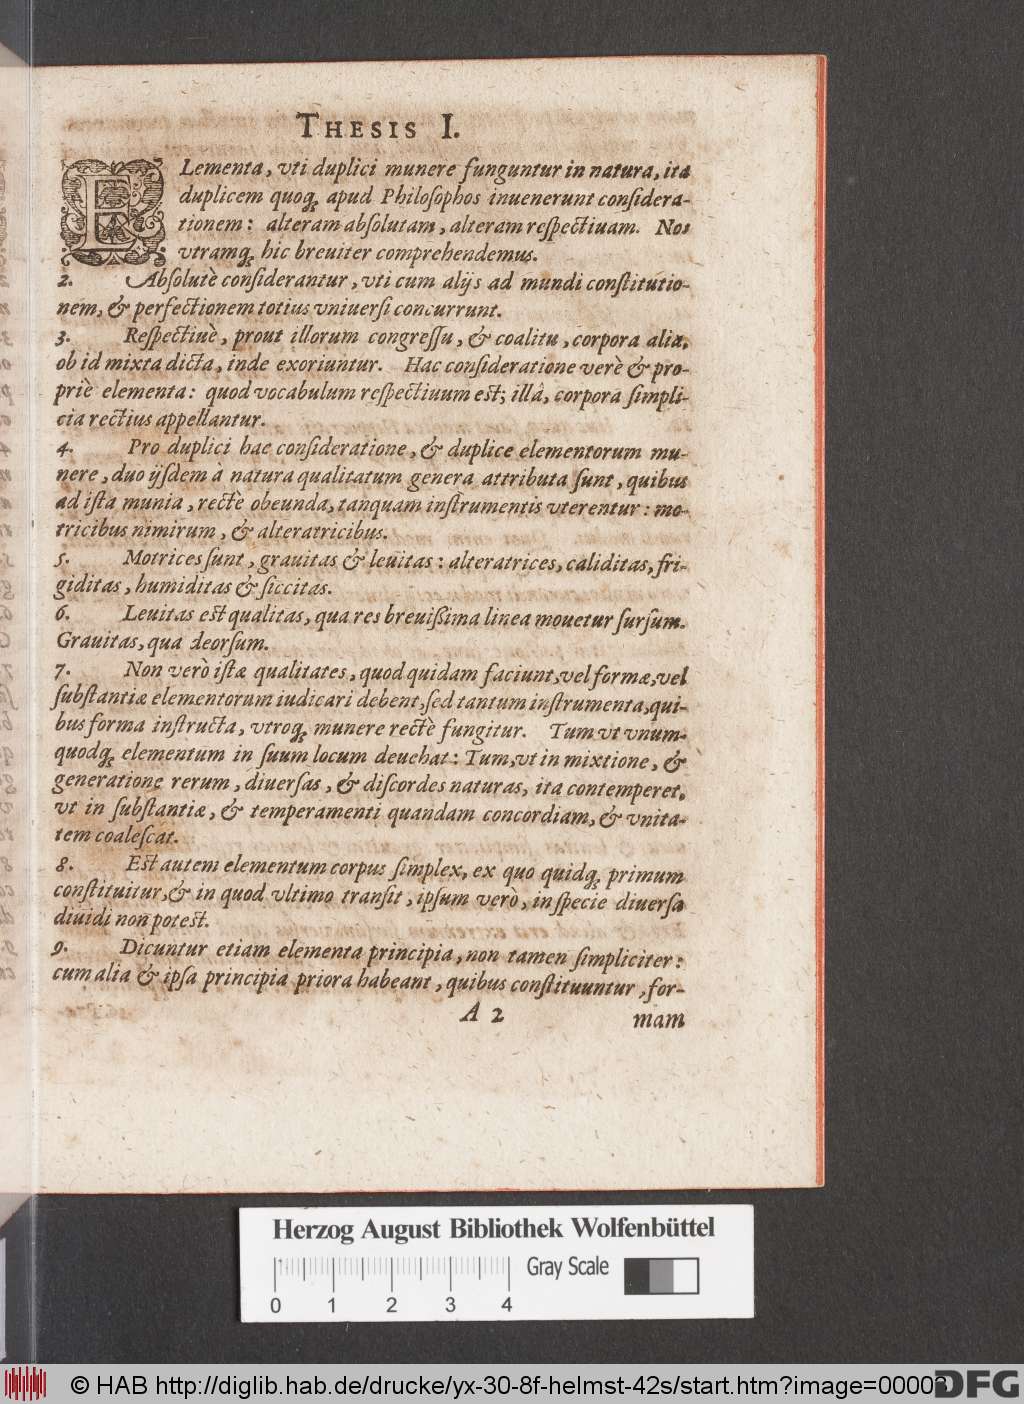 THESIS I.
ELementa, vti duplici munere funguntur in natura, ita
duplicem quoq; apud Philoſophos inuenerunt conſidera-
tionem: alteram abſolutam, alteram reſpectiuam. Nos
vtramq; hic breuiter comprehendemus.
2. Abſolutè conſiderantur, vti cum alijs ad mundi conſtitutio-
nem, & perfectionem totius vniuerſi concurrunt.
3. Reſpectiuè, prout illorum congreſſu, & coalitu, corpora alia,
ob id mixta dicta, inde exoriuntur. Hac conſideratione verè & pro-
priè elementa: quod vocabulum reſpectiuum est; illâ, corpora ſimpli-
cia rectius appellantur.
4. Pro duplici hac conſideratione, & duplice elementorum mu-
nere, duo ijſdem à natura qualitatum genera attributa ſunt, quibus
ad iſta munia, rectè obeunda, tanquam inſtrumentis vterentur: mo-
tricibus nimirum, & alteratricibus.
5. Motrices ſunt, grauitas & leuitas: alteratrices, caliditas, fri-
giditas, humiditas & ſiccitas.
6. Leuitas est qualitas, qua res breuißima linea mouetur ſurſum.
Grauitas, qua deorſum.
7. Non verò iſtæ qualitates, quod quidam faciunt, vel formæ, vel
ſubſtantiæ elementorum iudicari debent, ſed tantum inſtrumenta, qui-
bus forma inſtructa, vtroq; munere rectè fungitur. Tum vt vnum-
quodq; elementum in ſuum locum deuehat: Tum, vt in mixtione, &
generatione rerum, diuerſas, & diſcordes naturas, ita contemperet,
vt in ſubſtantiæ, & temperamenti quandam concordiam, & vnita-
tem coaleſcat.
8. Est autem elementum corpus ſimplex, ex quo quidq; primum
conſtituitur, & in quod vltimo tranſit, ipſum verò, in ſpecie diuerſa
diuidi non potest.
9. Dicuntur etiam elementa principia, non tamen ſimpliciter:
cum alia & ipſa principia priora habeant, quibus conſtituuntur, for-
A 2 mam
Herzog August Bibliothek Wolfenbüttel
Gray Scale
0 1 2 3 4
© HAB http://diglib.hab.de/drucke/yx-30-8f-helmst-42s/start.htm?image=00003
DFG